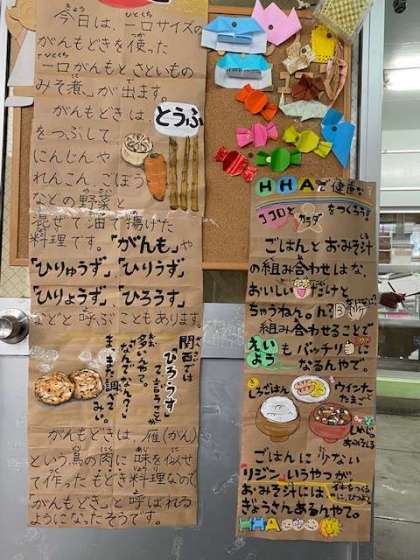 今日は、一口サイズの
がんもどきを使った
「一口がんもと、さといもの
みそ煮」が出ます。
がんもどきは
とうふ
をつぶして
にんじんや
れんこん、ごぼう
などの野菜と
混ぜて油で揚げた
料理です。「がんも」や
「ひりゅうず」「ひりうず」
「ひりょうず」「ひろうす」
などと呼ぶこともあります。
関西では
ひろうす
って言うことが
多いんやで。
なんでなん?って
がんもどきは、雁(がん)
という鳥の肉に味を似せ
て作ったもどき料理なので
「がんもどき」と呼ばれる
ようになったそうです。
HHAで健康な
ココロとカラダをつくろう!
ごはんとおみそ汁
の組み合わせはな、
おいしいだけと
ちゃうねん。ん?
組み合わせることで
えいようもバッチリに
なるんやで。
しろごはん
ウインナーと
たまごと
しめじの
おみそしる
ごはんに少ない
リジンいうやつが
おみそ汁には
ぎょうさんあるんやて。
HHA